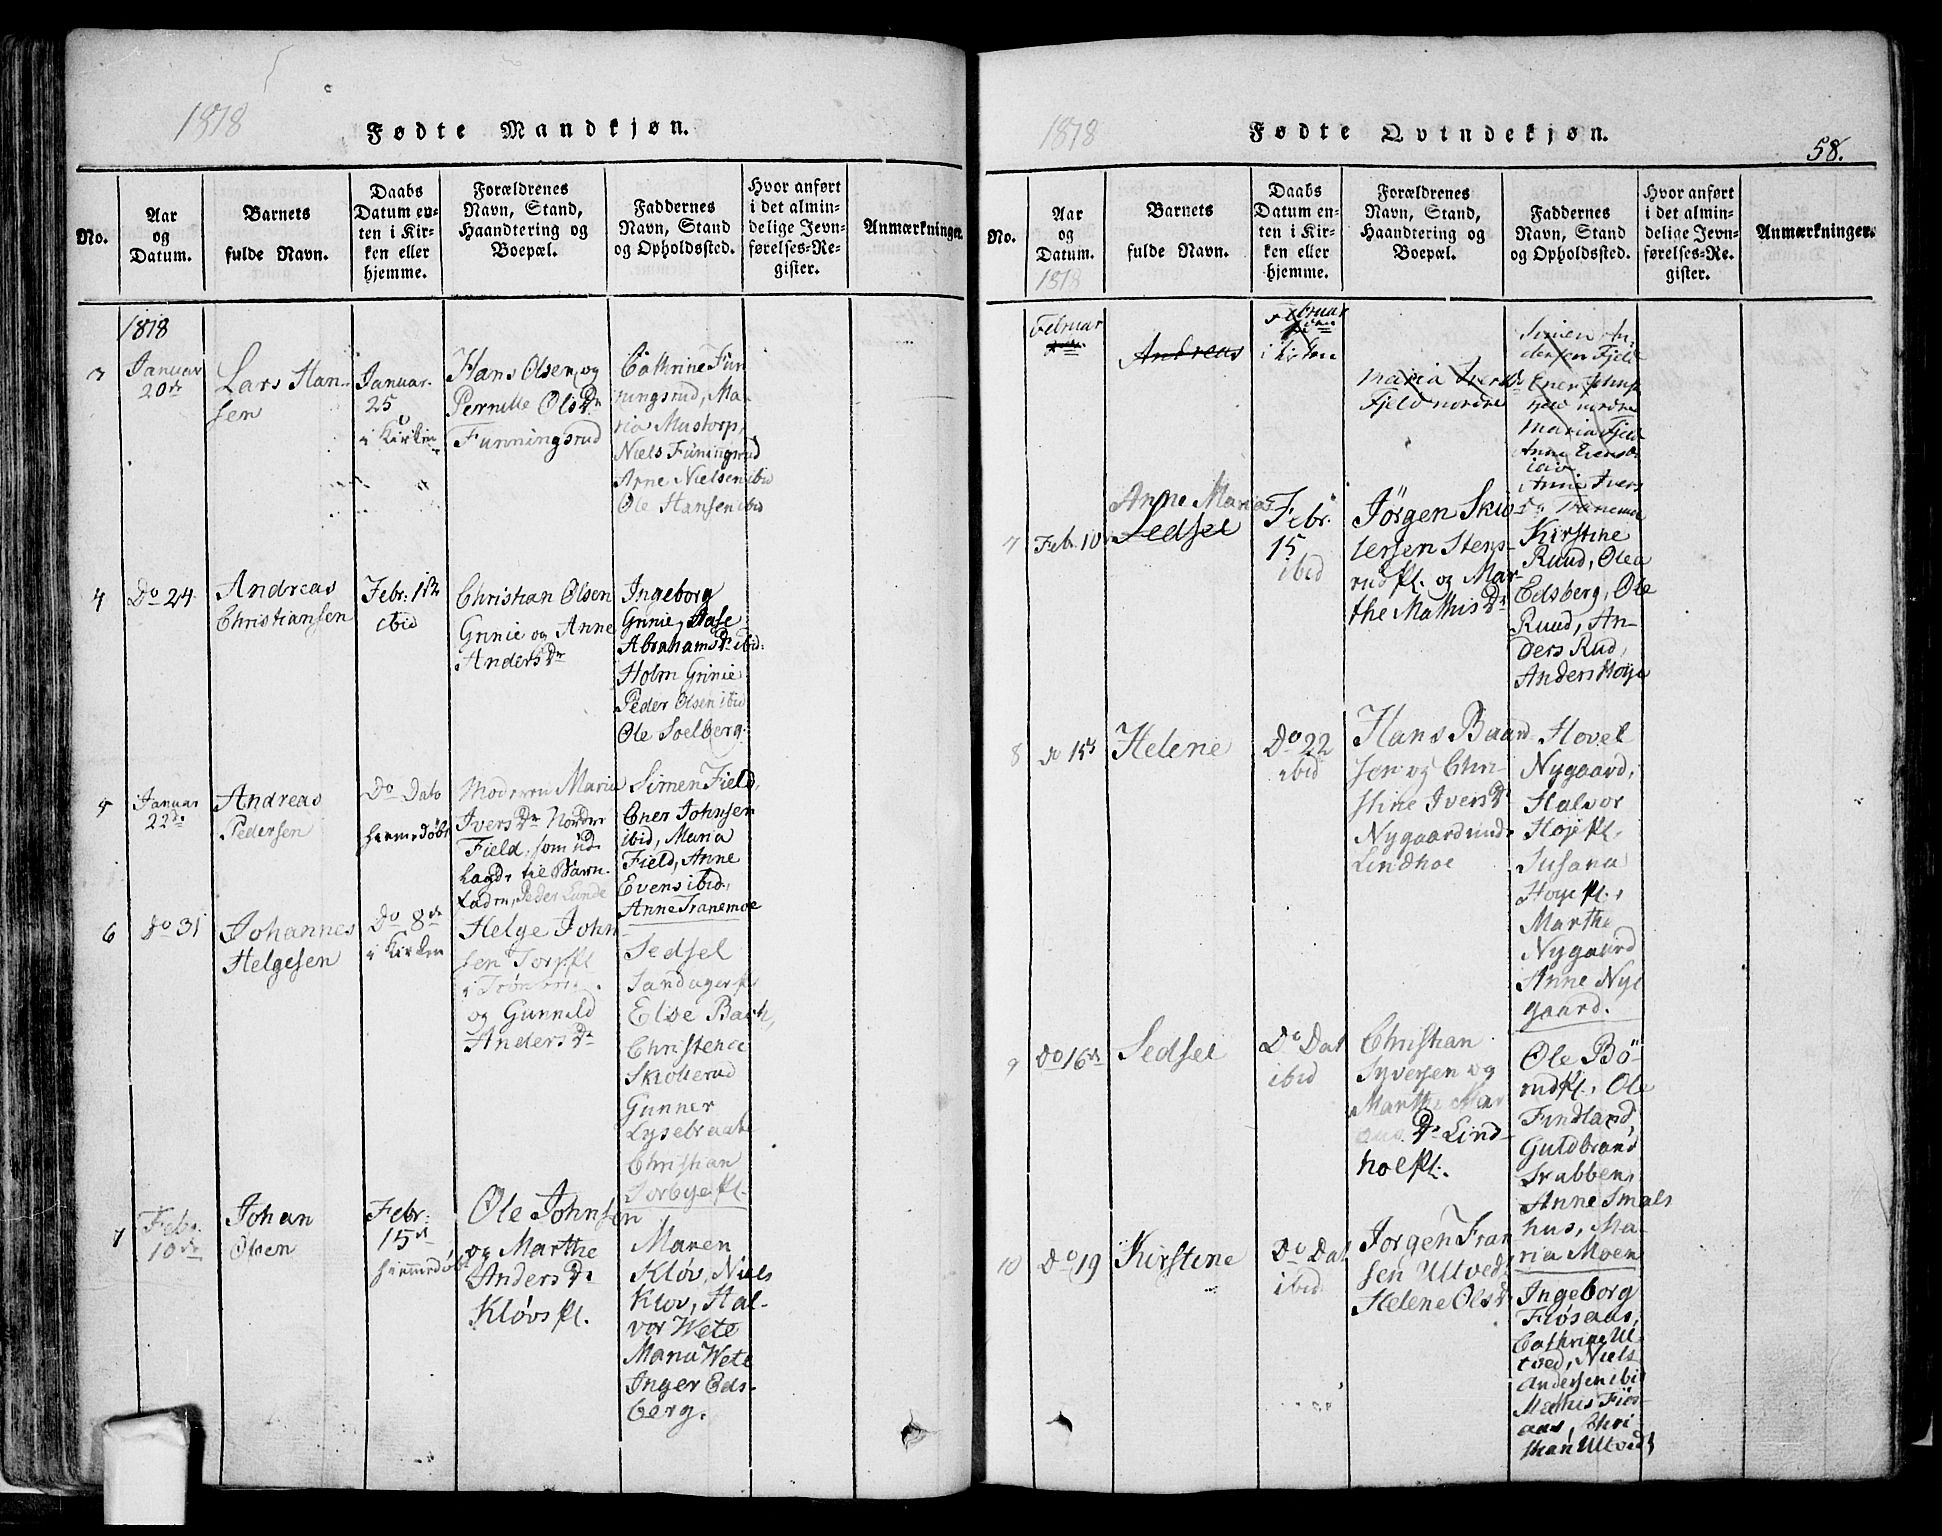 1818
Fødte Mandkjøn.
No.
Aar
og
Datum.
Barnets
fulde Navn.
Daabs
Datum en-
ten i Kir-
ken eller
hjemme.
Forældrenes
Navn, Stand,
Haandtering og
Boepæl.
Faddernes
Navn, Stand
og Opholdssted.
Hvor anført
i det almin-
delige Jevn-
førelses-Re-
gister.
Anmærkninger.
1818
3
Januar
20de
Lars Han-
sen
Januar.
25
i Kirken
Hans Olsen og
Pernille OlsDr
Funningsrud
Cathrine Fun
ningsrud, Ma-
ria Mustorp,
Niels Funingsrud
Arne Nielsen ibid
Ole Hansen ibid
4
Do 24
Andreas
Christiansen
Febr. 1ste
ibid
Christian Olsen
Grinie og Anne
AndersDr
Ingeborg
Grinie, Aase
AbrahamsDr ibid:
Holm Grinie
Peder Olsen ibid
Ole Soelberg.
5
Januar
22de
Andreas
Pedersen
Do Dato
hiemedøbt
Moderen Maria
IversDr Nordre
Field, som ud-
lagde til Barn-
faderen, Peder Lunde
Simen Field,
Ener Johnsen
ibid, Maria
Field, Anne
Evens ibid,
Anne Tranemoe
6
Do 31
Johannes
Helgesen
Do 8de
i Kirken
Helge John
sen Torp pl.
og Gunnild
AndersDr
Sedsel
Sandager pl
Elise Bach,
Christence
Skiollerud
Gunner
Lysebraate
Christian
Torbye pl.
7
Febr.
10de
Johan
Olsen
Febr.
15de
hiemmedøbt
Ole Johnsen
og Marthe
AndersDr
Kløvs pl.
Maren
Kløv, Niels
Klov, Hal-
vor Wete
Maria Wete
Inger Eds-
berg.
1818
Fødte Qvindekjøn.
58.
No.
Aar
og
Datum.
1818
Barnets
fulde Navn.
Daabs
Datum en-
ten i Kir-
ken eller
hjemme.
Forældrenes
Navn, Stand,
Haandtering og
Boepæl.
Faddernes
Navn, Stand
og Opholdssted.
Hvor anført
i det almin-
delige Jevn-
førelses-Re-
gister.
Anmærkninger.
Februar
Andreas
Februar
i kirken
Maria IversDr
Fjeld nordre
Simen An-
dersen Fjeld
Ener Johns
Fjeld nordre
Maria Fjeld
Anne Evens
ibid
Anne Ivers
Dr Tranemoe
7
Febr. 10
Anne Maria
Sedsel
Febr.
15
ibid
Jörgen Skio-
lersen Stens-
rud pl. og Mar-
the MathisDr
Kirstine
Ruud, Olea
Edsberg, Ole
Ruud, An-
ders Rud,
Anders Hoye
8
Do 15de
Helene
Do 22
ibid
Hans Baard-
sen og Chri-
stine IversDr
Nygaard und.
Lindhoe
Hovel
Nygaard,
Halvor
Hoje pl.
Susana
Hoye pl.,
Marthe
Nygaard
Anne Nye
gaard.
9
Do 16de
Sedsel
Do Dat
ibid
Christian
Syversen og
Marthe Mar
Dr Lind-
hoe pl.
Ole Bö-
rud pl., Ole
Findland,
Guldbrand
Grabben,
Anne Smals
hus, Ma-
ria Moen
10
Do 19
Kirstine
Do Dat
ibid
Jorgen Fran
sen Ultved
Helene OlsDr
Ingeborg
Fiøsaas,
Cathrine Ul-
tved, Niels
Andersen ibid
Mathis Fiös
aas, Chri-
stian Ultvedt